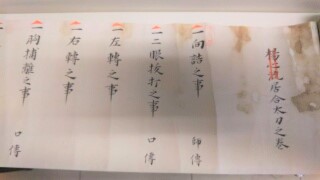 居合大目之巻
一向詰之事 師傳
一二眼技打之事 口傳
一左轉之事
一右轉之事
一胸捕離之事 口傳